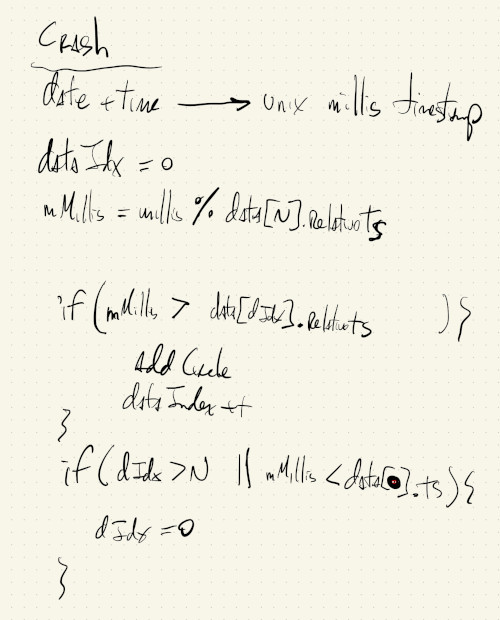 Crash
date + time → unix millis timestamp
dataIdx = 0
mMillis = millis % data[N].RelativeTs
if (mMillis > data[dIdx].RelativeTs ) {
add Circle
dataIndex ++
}
if (dIdx > N || mMillis < data[0].ts) {
dIdx = 0
}